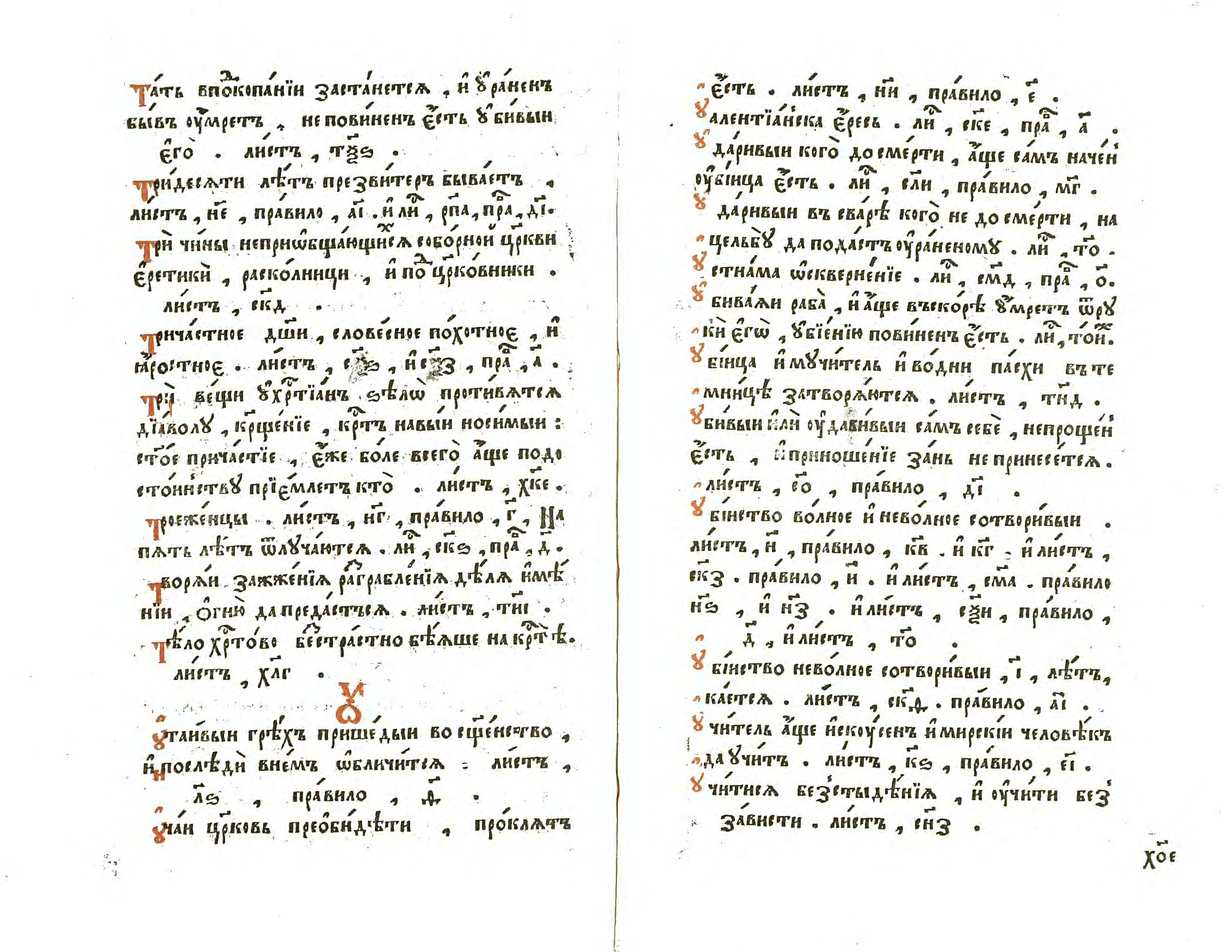 Та́ть впⷣокопа́нїи заста́нетсѧ , и҆ ᲂу҆ра́ненъ
бы́въ ᲂу҆́мретъ , не пови́ненъ є҆́сть ᲂу҆би́выи
є҆го̀ . ли́стъ , т҃ѯѕ .
Три́десѧти лѣ́тъ презви́теръ быва́етъ .
ли́стъ , н҃е , пра́вило , а҃і . и҆ лиⷭ҇ , р҃па , праⷡ , д҃і .
Трѝ чи́ны неприѡбща́ющихсѧ собо́рной цр҃кви
є҆ретикѝ , раско́лницы , и҆ поⷣцр҃ко́вники .
ли́стъ , с҃кд .
Трича́стное дш҃и , слове́сное по́хотное , и҆
ꙗ҆́ростное . ли́стъ , и҆ праⷡ , а҃ .
Трѝ ве́щи ᲂу҆ хрⷭ҇тїа́нъ ѕѣлѡ̀ проти́вѧтсѧ
дїа́волу , кр҃ще́нїе , крⷭ҇тъ на вы́и носи́мыи :
ст҃о́е прича́стїе , є҆́же бо́ле всего̀ а҆́ще подо
сто́инству прїе́млетъ кто̀ . ли́стъ , х҃ке .
Троеже́нцы . ли́стъ , н҃г , пра́вило , г҃ , На
пѧ́ть лѣ́тъ ѿлуча́ютсѧ . лиⷭ҇ , с҃кѕ , праⷡ , д҃ .
Творѧ́и зажже́нїѧ разграбле́нїѧ дѣ́лѧ и҆мѣ́
нїи , ѻ҆гню̀ да преда́стсѧ . ли́стъ , т҃иі .
Тѣ́ло хрⷭ҇то́во безстра́стно бѣ́ѧше на крⷭ҇тѣ̀ .
ли́стъ , х҃лг .
Ꙋ
ᲂу҆таи́выи грѣ́хъ прише́дыи во сщ҃е́нство ,
и҆ послѣдѝ в не́мъ ѡ҆бличи́тсѧ : ли́стъ ,
л҃ѕ , пра́вило , ѳ҃ .
ᲂу҆ча́и цр҃ковь преѻби́дѣти , про́клѧтъ
є҆́сть . ли́стъ , н҃и , пра́вило , є҃ .
ᲂу҆алентїа́нска є҆́ресь . лиⷭ҇ , с҃ке , праⷡ , а҃ .
ᲂу҆да́ривыи кого̀ до сме́рти , а҆́ще са́мъ наче́н
ᲂу҆бі́ица є҆́сть . лиⷭ҇ , с҃ли , пра́вило , м҃г .
ᲂу҆да́ривыи въ сва́рѣ кого̀ не до сме́рти , на
цельбу̀ да пода́стъ ᲂу҆ра́неному . лиⷭ҇ , т҃о .
ᲂу҆стна́ма ѡ҆скверне́нїе . лиⷭ҇ , с҃мд , праⷡ , о҃ .
ᲂу҆бива́ѧи раба̀ , и҆ а҆́ще въско́рѣ ᲂу҆́мретъ ѿ ру
кѝ є҆гѡ̀ , ᲂу҆бїе́нїю пови́ненъ є҆́сть . лиⷭ҇ , т҃ои .
ᲂу҆бі́ица и҆ мучи́тель и҆ во дни̑ па́схи въ те
мни́цѣ затворѧ́ютсѧ . ли́стъ , т҃нд .
ᲂу҆би́выи и҆лѝ ᲂу҆дави́выи са́мъ себѐ , непроще́н
є҆́сть , и҆ приноше́нїе за́нь не принесе́тсѧ .
ли́стъ , с҃о , пра́вило , д҃і .
ᲂу҆бі́иство во́лное и҆ нево́лное сотвори́выи .
ли́стъ , н҃ , пра́вило , к҃в . и҆ к҃г : и҆ ли́стъ ,
с҃кз . пра́вило , и҃ . и҆ ли́стъ , с҃ма . пра́вило
н҃ѕ , и҆ н҃з . и҆ ли́стъ , с҃ѯи , пра́вило ,
д҃ , и҆ ли́стъ , т҃о .
ᲂу҆бі́иство нево́лное сотвори́выи , і҃ , лѣ́тъ ,
ка́етсѧ . ли́стъ , с҃кѳ . пра́вило , а҃і .
ᲂу҆чи́тель а҆́ще и҆ску́сенъ и҆ мирскі́и человѣ́къ
да ᲂу҆чи́тъ . ли́стъ , к҃ѕ , пра́вило , є҃і .
ᲂу҆чи́тисѧ безстыдѣ́нїѧ , и҆ ᲂу҆чи́ти без
за́висти . ли́стъ , с҃нз .
х҃ое